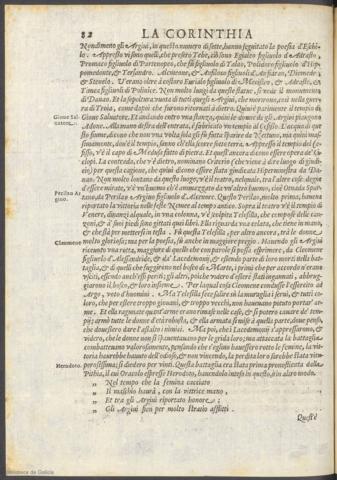 82 LA CORINTHIA
Nondimeno gli Argiui, in questo numero di sette, hanno seguitato la poesia d'Eschi-
lo. Appresso vi sono quelli, che presero Tebe,
Promaco figliuolo di Partenopeo, che fù figliuolo di Talao, Polidoro figliuolo d'Hip-
pomedonte, & Tersandro. Alcmeone, & Anfiloco figliuoli di Anfiarao, Diomede,
& Stenelo. V'erano oltre à costoro Eurialo figliuolo di Mecisteo, & Adrasto, &
Timea figliuoli di Polinice. Non molto lungi da queste statue, si vede il monumento
di Danao. Et la sepoltura vuota di tutti quegli Argiui, che morirono, così nella guer-
ra di Troia, come dapoi che furono ritornati à casa. Quiui è parimente il tempio di
Gioue Sal-
uatore.
Gioue Saluatore. Et andando entro vna stanza, quiui le donne de gli Argiui piangono
Adone. Alla man destra dell'entrata, è fabricato vn tempio al Cefisso. L'acqua di que
sto fiume,
mamente, doue è il tempio,
fisso, v'è il capo di Medusa fatto di pietra. Et questa ancora dicono essere opera de' Ci-
clopi. La contrada, che v'è dietro, nominano Criterio (che viene à dire luogo di giudi-
cio) per questa cagione, che quiui dicono essere stata giudicata Hipermnestra da Da-
nao. Non molto lontano da questo luogo, v'è il teatro, nel quale, tra l'altre cose degne
d'essere mirate, v'è vn'huomo ch'è ammazzato da vn'altro huomo, cioè
Perilao Ar-
giuo.
tano, da Perilao Argiuo figliuolo d'Alcenore. Questo Perilao, molto prima, haueua
riportato la vittoria nelle feste Nemee al contrasto antico. Sopra il teatro v'è il tempio di
Venere, dinanzi alquale, in vna colonna, v'è scolpita Telesilla, che compose delle can-
zoni, & à suoi piedi sono gittati quei libri. Ella riguarda vna celata, che tiene in mano,
& che stà per mettersi in testa. Fù questa Telesilla, per altro ancora, trà le donne
Cleomene
molto gloriosa; ma per la poesia, fù anche in maggiore pregio. Hauendo gli Argiui
riceuuto vna rotta, maggiore di quello che con parole si possa esprimere, da Cleomene
figliuolo d'Alessandride, & da' Lacedemonij, & essendo parte di loro morti nella bat-
taglia, & di quelli che fuggirono nel bosco di
usciti, essendo anch'essi periti; gli altri poi, poiche videro d'essere stati ingannati, abbrug-
giarono il bosco, & loro insieme. Per laqual cosa Cleomene condusse l'essercito ad
Argo, voto d'huomini. Ma Telesilla fece salire sù la muraglia i serui, & tutti colo-
ro, che per essere troppo giouani, & troppo vecchi, non haueuano potuto portar l'ar-
me. Et ella ragunate quant'arme erano rimase nelle case, & si potero cauare de' tem-
pij; armò tutte le donne d'età robusta, & ella armata si mise à quella parte, doue pensò,
che douessero dare l'assalto i nimici. Ma poi, che i Lacedemonij s'appressarono, &
videro, che le donne non si spauentauano per le grida loro; ma attaccata la battaglia,
combatteuano valorosamente, pensando che s'eglino hauessero rotto le femine, la vit-
toria haurebbe hauuto dell'odioso, & non vincendo, la perdita loro sarebbe stata vitu-
Herodoto.
perosissima; si diedero per vinti. Questa battaglia era stata prima pronosticata dalla
Pithia, il cui Oracolo espresse Herodoto, hauendolo inteso in questo, ò in altro modo.
" Nel tempo che la femina cacciato
" Il maschio haurà, con la vittrice mano,
" Et tra gli Argiui riportato honore;
" Gli Argiui sien per molto stratio afflitti.
Quest'è
Biblioteca de Galicia